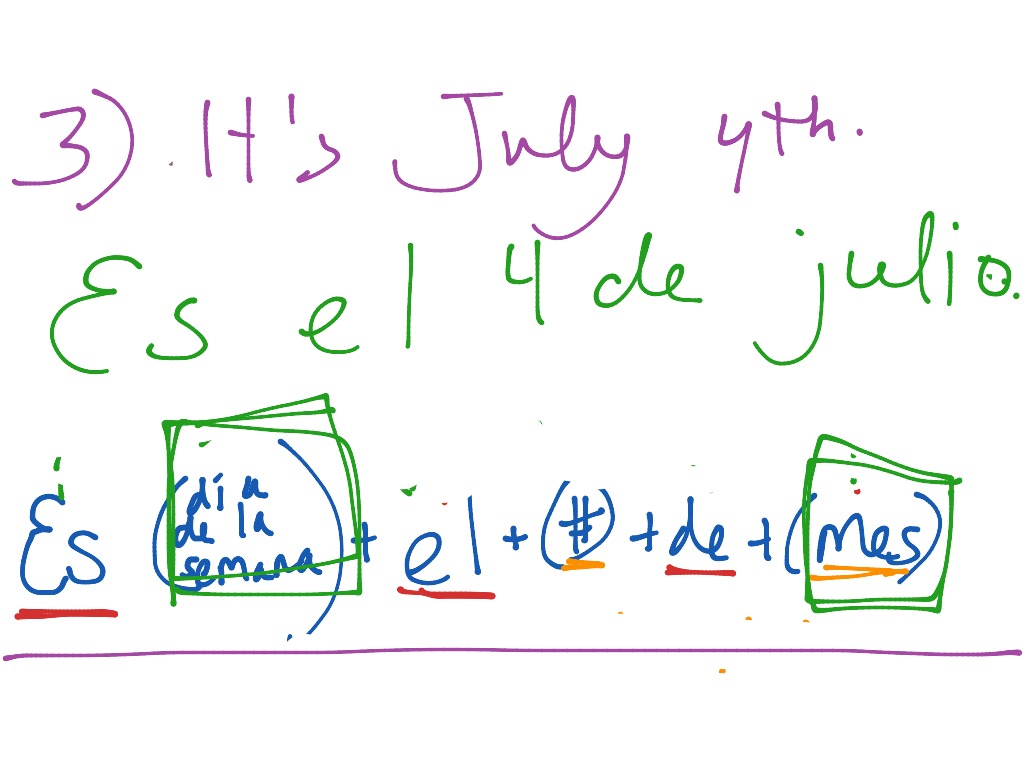 3) It's July 4th.
Es el 4 de julio.
Es (día de la semana) + el + (#) + de + (mes)